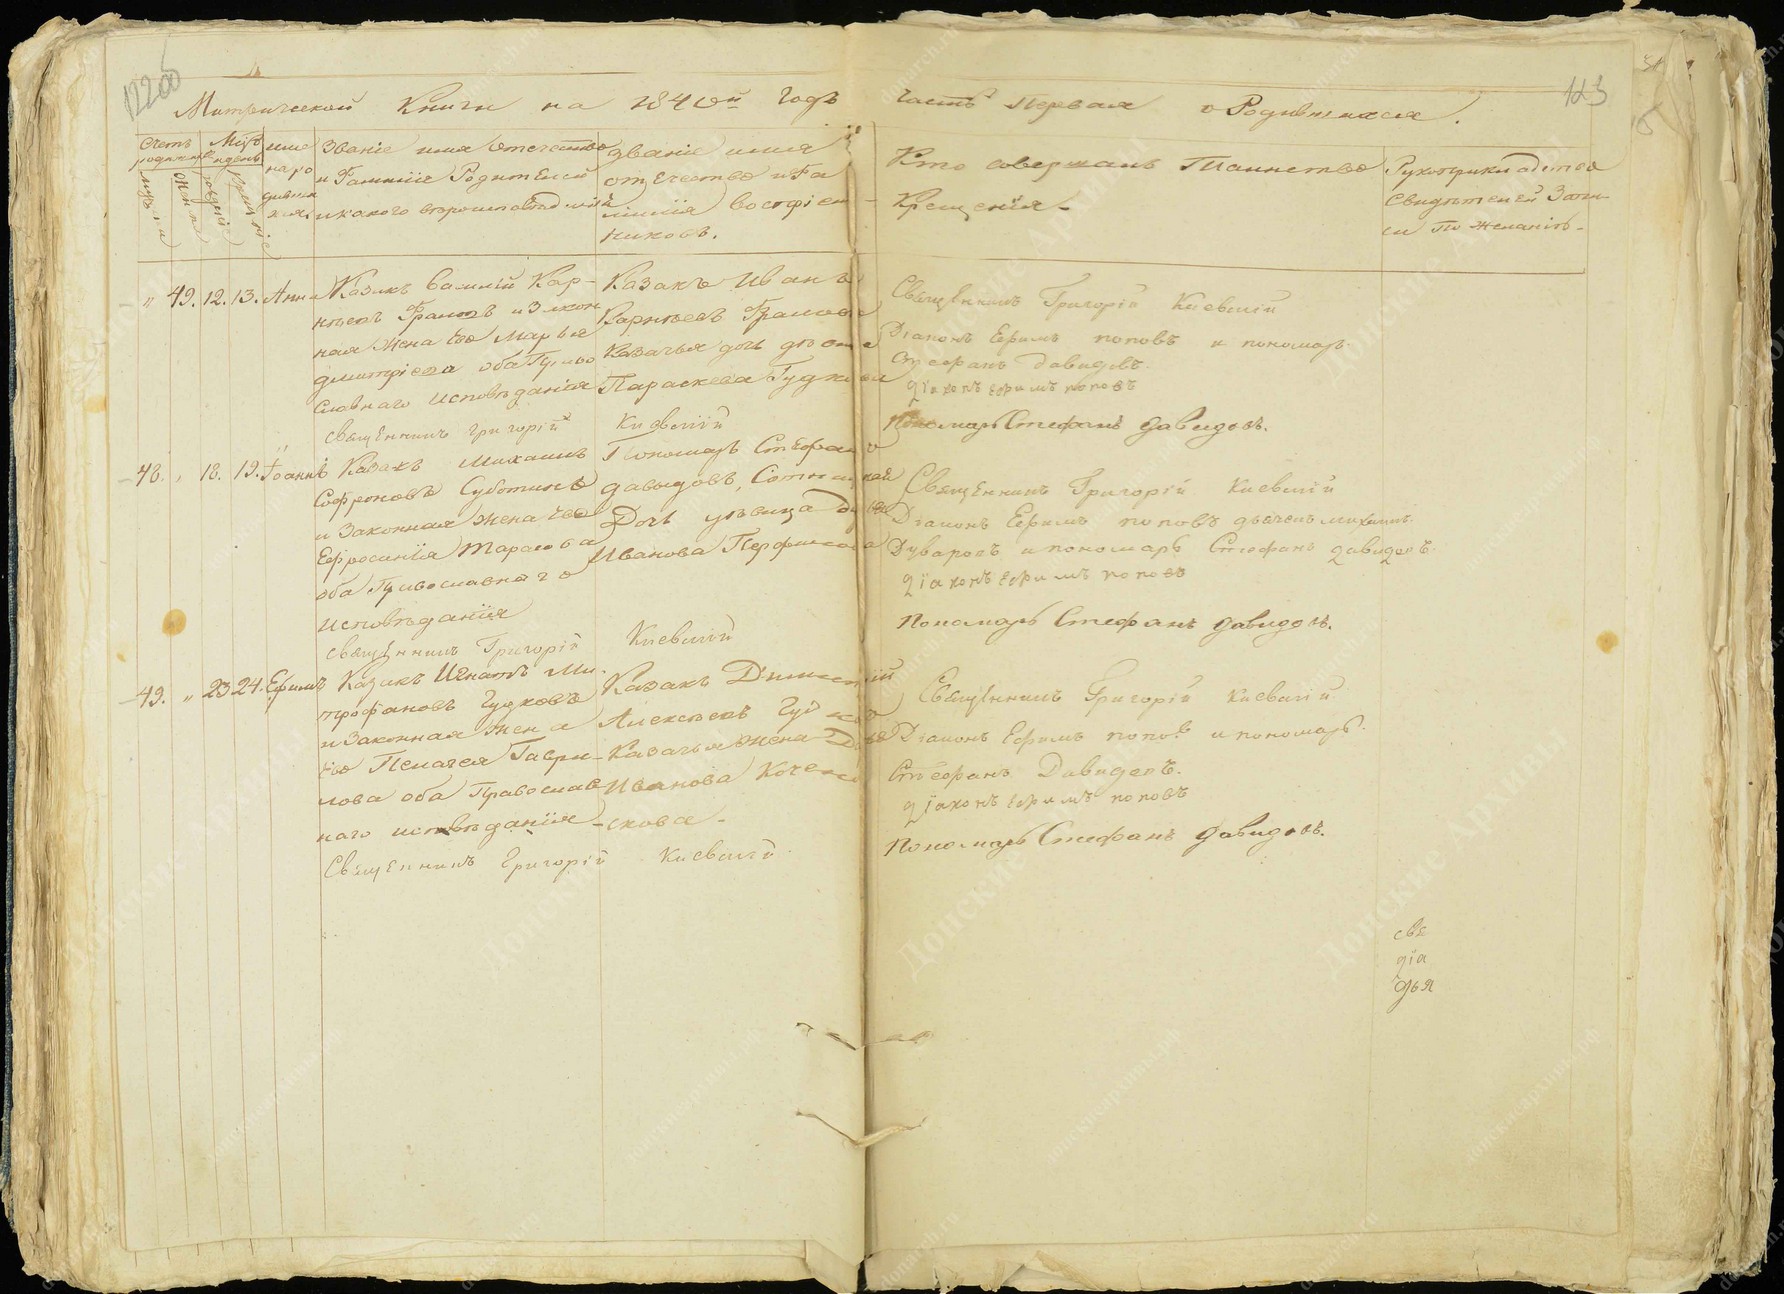 Метрической Книги на 1840й Годъ
часть Первая о Родившихся.
123
Счетъ родившихся
мужска
Женска
Мѣсяцъ и день
рожденія
крещенія
имя народившихся
Званіе имя отечество
и Фамилія Родителей
и какого вероисповѣданія
Званіе имя
отчество и Фа
милія воспріем
никовъ.
Кто совершалъ Таинство
Крещенія
Рукоприкладство
Свидѣтелей Запи-
си По желанію
" 49. 12. 13. Анна
Казакъ Василій Кар-
нѣевъ Фроловъ и Закон
ная Жена Его Марья
Дмитріева оба Право
славнаго исповѣданія
Казакъ Иванъ
Карнѣевъ Фроловъ
Казачья дочь дѣвица
Параскева Гудкова
Священникъ Григорій Киевскій
Священникъ Григорій Киевскій
Діаконъ Ефимъ поповъ и пономарь
Стефанъ Давидовъ.
діаконъ ефимъ поповъ
Пономарь Стефанъ Давидовъ.
48. " 18. 19. Іоаннъ
Казакъ Михаилъ
Софроновъ Суботинъ
и Законная Жена Его
Ефросинія Тарасова
оба Православнаго
исповѣданія
Пономарь Стефанъ
Давыдовъ, Сотницкая
Дочь дѣвица
Иванова
Священникъ Григорій Киевскій
Священникъ Григорій Киевскій
Діаконъ Ефимъ поповъ дьячекъ михаилъ
и пономарь Стефанъ давидовъ.
діаконъ ефимъ поповъ
Пономарь Стефанъ Давидовъ.
49. " 23 24. Ефимъ
Казакъ Игнатъ Ми-
трофановъ Гудковъ
и Законная Жена
Его Пелагея Гаври-
лова оба Православ
наго исповѣданія
Казакъ Димитрій
Алексѣевъ
Казачья Жена
Иванова Кочето
-скова-
Священникъ Григорій Киевскій
Священникъ Григорій Киевскій
Діаконъ Ефимъ поповъ и пономарь
Стефанъ Давидовъ.
діаконъ ефимъ поповъ
Пономарь Стефанъ Давидовъ.
свя
діа
дья